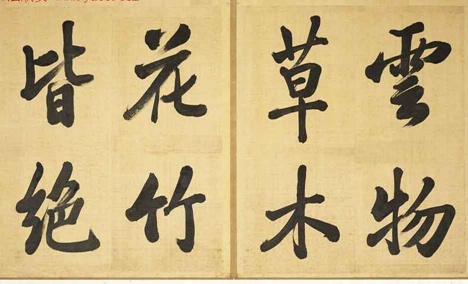 雲物
草木
花竹
皆绝